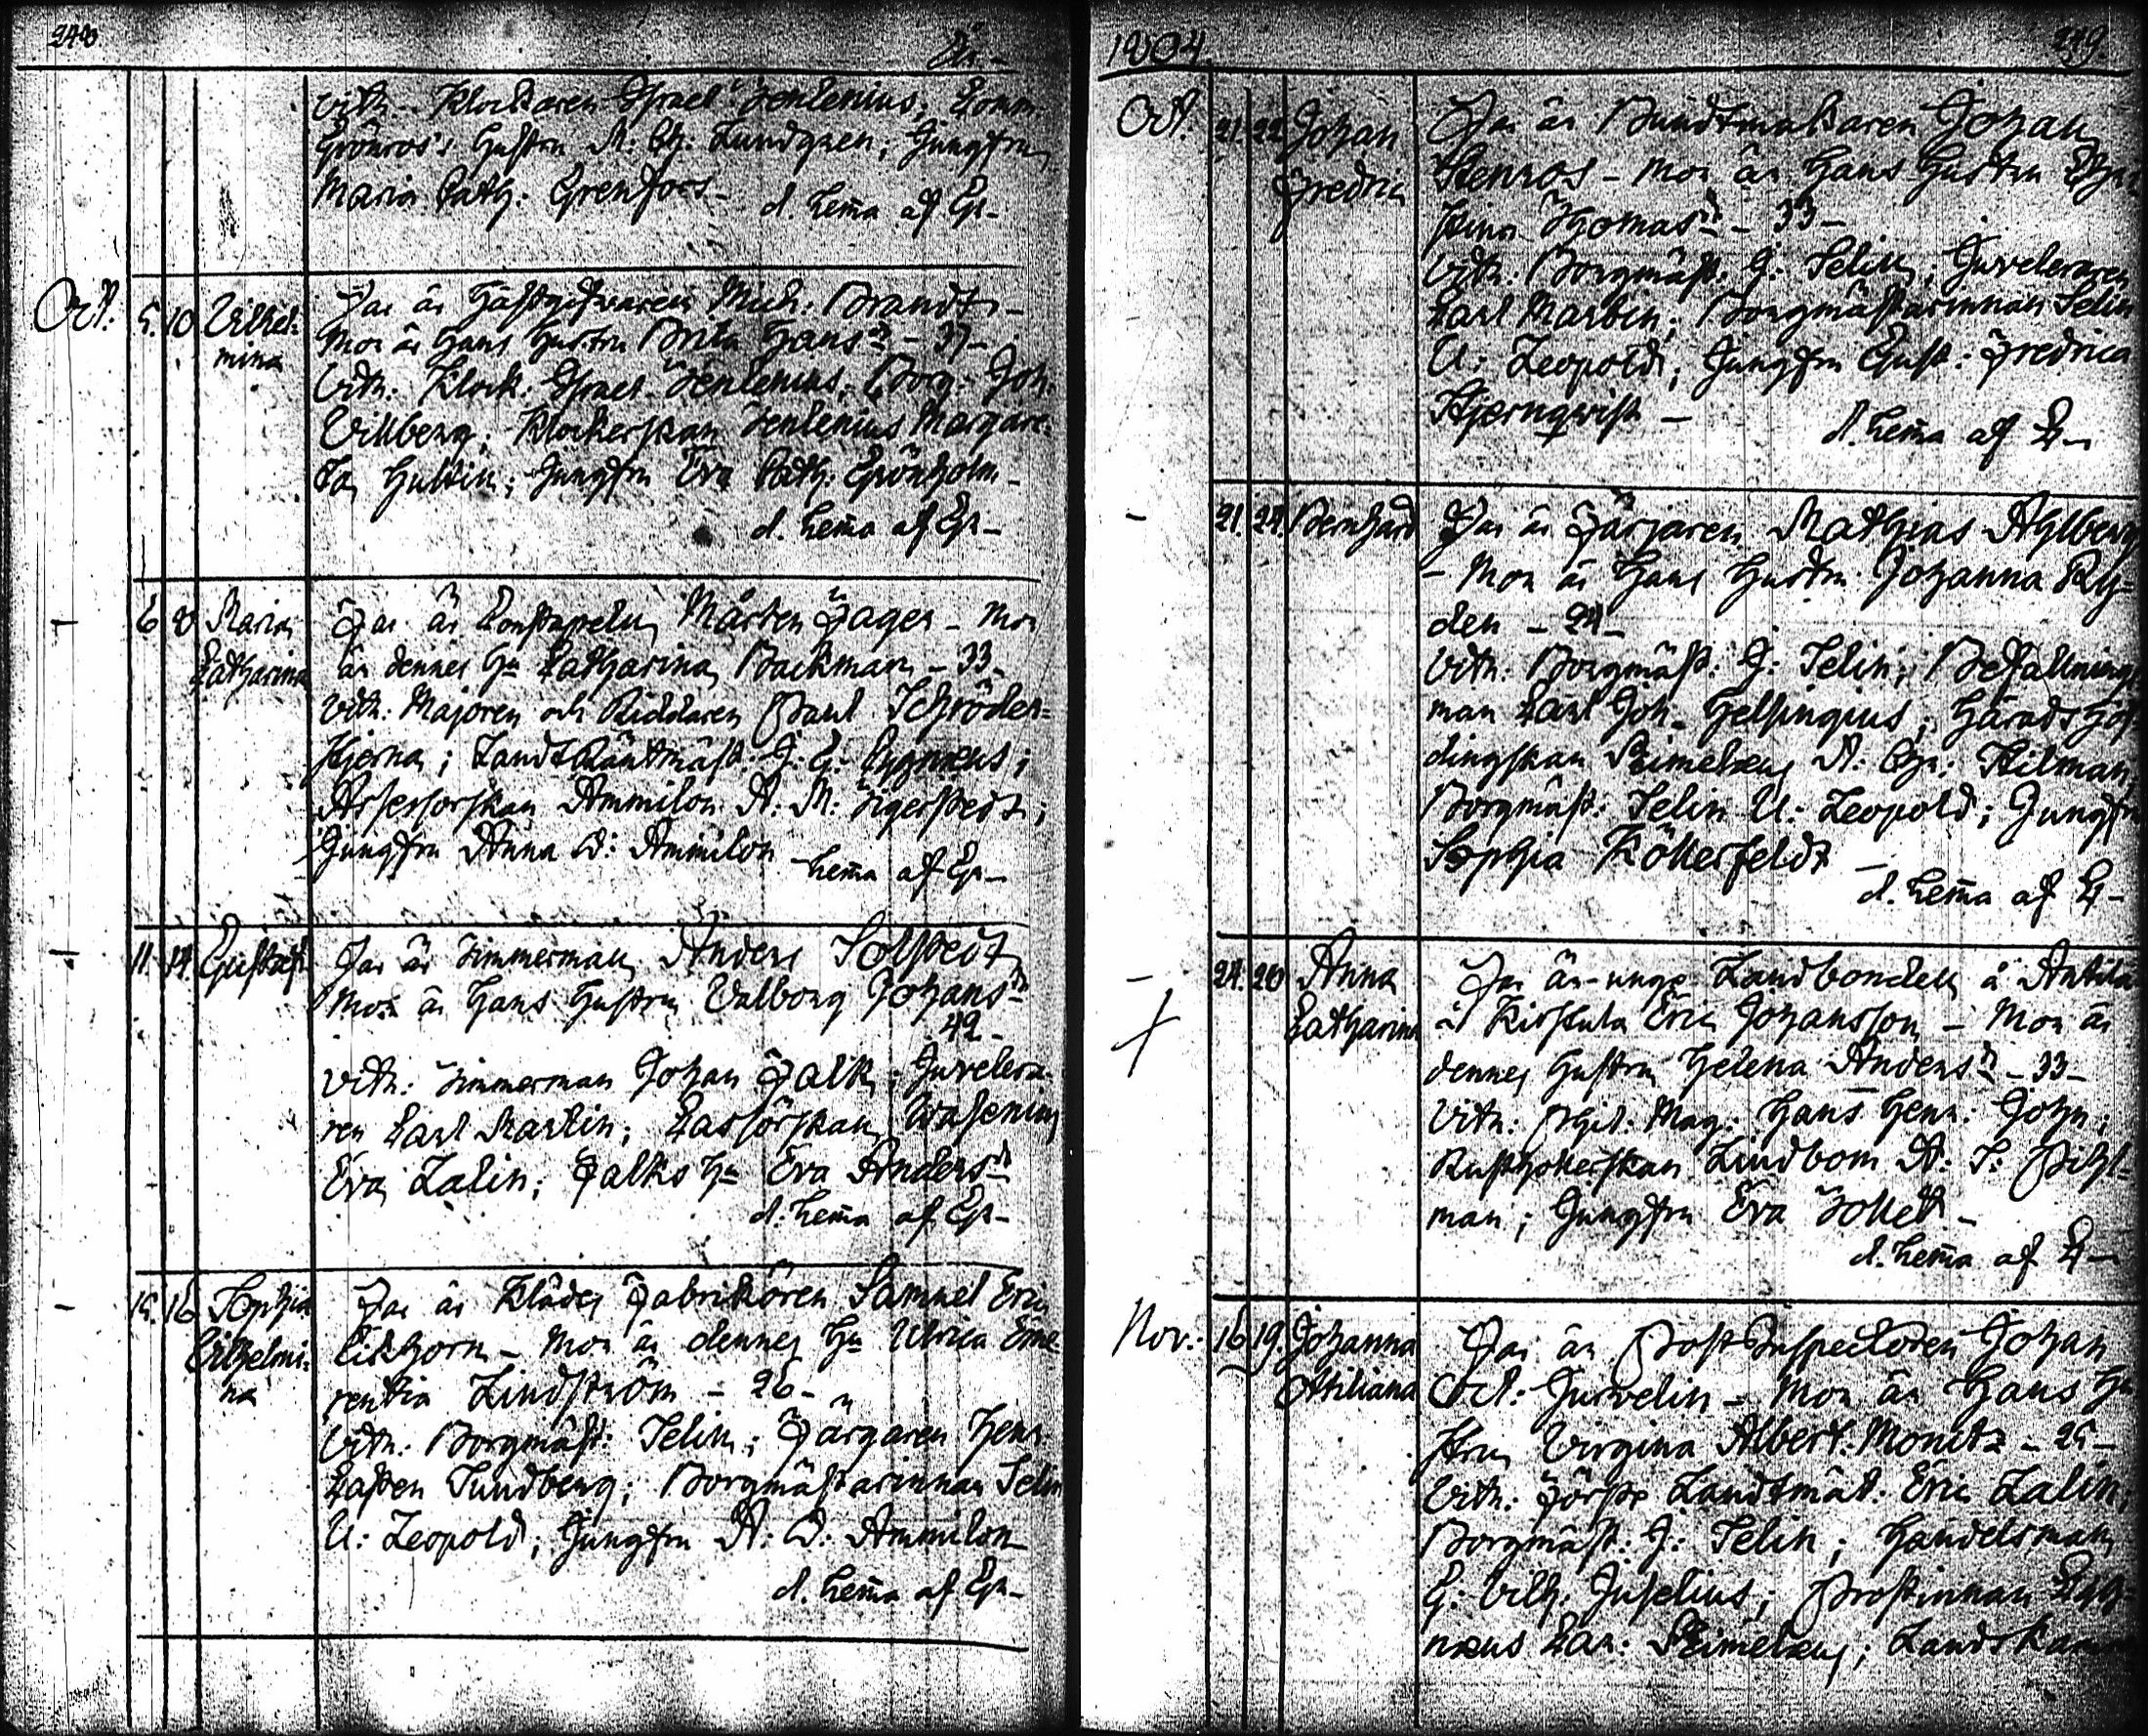 248.
År -
Vitn. Klockaren Israel Zenlenius; Comm.
Grönros's Hustru M: Ch: Lundgren; Jungfru
Maria Cath: Grenfors -
d. hema af Gr -
Oct.
5. 10
Vilhel-
mina
Far är Gästgifvaren Mich: Brandt -
Mor är Hans Hustru Brita Hansdr - 37 -
Vitn: Klock: Israel Zenlenius; Borg: Joh.
Villberg; Klockerskan Zenlenius Margare-
ta Hultin; Jungfru Eva Cath: Grönholm -
d. hema af Gr -
-
6 8
Maria
Catharina
Far är Konstapeln Mårten Fager - Mor
är dennes Hu Catharina Backman - 33 -
Vitn: Majoren och Riddaren Paul Schröder-
stjerna; Landträntmäst: J: G: Cygnæus;
Assessorskan Ammilon A: M: Zigerstedt;
Jungfru Anna D: Ammilon
hema af Gr -
-
11. 14.
Gustaf
Far är Timmerman Anders Solstedt
Mor är Hans Hustru Valborg Johansdr
42 -
Vitn: Timmerman Johan Falk; Juvelera-
ren Carl Martin; Cassörskan Wasenius
Eva Zalin; Falks Hu Eva Andersdr
d: hema af Gr -
-
15. 16
Sophia
Vilhelmi-
na
Far är Klädes Fabrikören Samuel Eric
Eikhorn - Mor är dennes Hu Ulrica Eme-
rentia Lindström - 26 -
Vitn: Borgmäst: Selin; Färgaren Henr.
Casten Sundberg; Borgmästarinnan Selin
U: Leopold; Jungfru A: D: Ammilon
d. hema af Gr -
1804.
249.
Oct.
21. 22
Johan
Fredric
Far är Bundtmakaren Johan
Stenros - Mor är Hans Hustru Chri-
stina Thomasdr - 33 -
Vitn: Borgmäst: J: Selin; Juveleraren
Carl Martin; Borgmästarinnan Selin
U: Leopold; Jungfru Gust: Fredrica
Stjernqvist -
d. hema af G -
-
21. 24.
Bernhard
Far är Färjaren Mathias Ahlberg
- Mor är Hans Hustru Johanna Ry-
den - 24 -
Vitn: Borgmäst: J: Selin; Befallnings
man Carl Joh. Helsingius; Häradshöf
dingskan Primelæus A: Chr: Stilman
Borgmäst: Selin U: Leopold; Jungfru
Sophia Röllersfeldt -
d. hema af G -
-
24. 28
Anna
Catharina
Far är unge Landbonden å Antila
i Kirstula Eric Johansson - Mor är
dennes Hustru Helena Andersdr - 33 -
Vitn: Phil: Mag: Hans Henr: John;
Rusthollerskan Lindbom A: S: Pihl-
man; Jungfru Eva Tollet -
d. hema af G -
Nov:
16 19.
Johanna
Attiliana
Far är PostInspectoren Johan
Oct: Juvelin - Mor är Hans Hu
stru Virgina Albert: Monitz - 25 -
Vitn: Förste Landtmät: Eric Zalin;
Borgmäst: J: Selin; Handelsman
G: Vilh: Juselius; Prostinnan
Car: Primelæus;